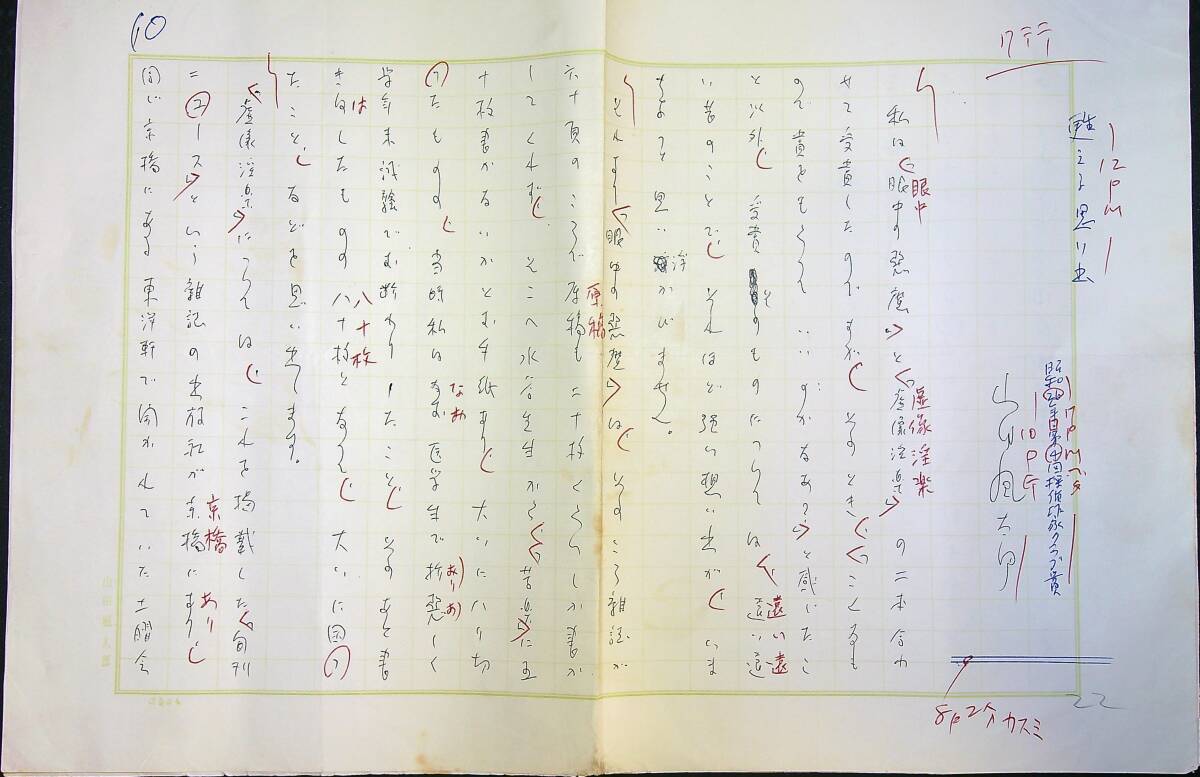 10
ワチテ
1 12PM 1
甦える思い出
昭和24年第2回探偵作家クラブ賞
山田風太郎
私は「眼中の悪魔」と「虚像淫楽」の二本合わ
眼中
虚像淫楽
せて受賞したのですが、そのとき、「こんなも
ので賞をもらっていいのかなあ？」と感じたこ
と以外、受賞そのものについては、遠い遠
遠い遠
い昔のことで、それほど強い想い出が、いま
ちょっと思い浮かびません。
それより「眼中の悪魔」は、そのころ雑誌が
六十頁のころで、原稿も二十枚くらいしか書か
原稿
してくれず、そこへ水谷先生から、「苦楽」に五
十枚書かないかとお手紙あり、大いにハリ切
ったものの、当時私はなお医学生で、折悪しく
なお
あり
学年末試験でお断わりしたこと、そのあと書
きはしたものの八十枚となって、大いに困っ
は
八十枚
たこと、などを思い出します。
「虚像淫楽」については、これを掲載した「旬刊
ニュース」という雑誌の出版社が京橋にあり、
京橋
あり
同じ京橋にある東洋軒で開かれていた土曜会
8P2分カスミ
22